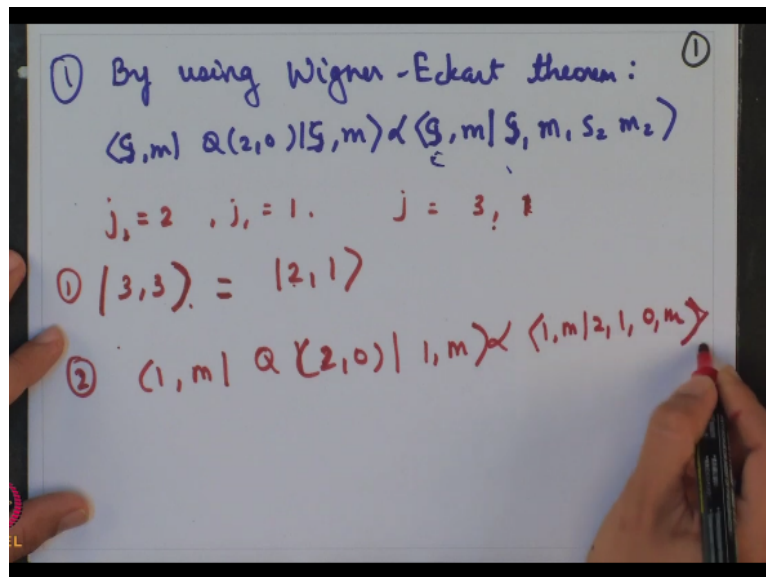 ①
① By using Wigner-Eckart theorem:
⟨S,m| Q(2,0)|S,m⟩ ∝ ⟨S,m| S, m, S₂ m₂⟩
j₁ = 2 , j₁ = 1. j = 3, 1
① |3,3⟩ = |2,1⟩
② ⟨1,m| Q (2,0)| 1,m⟩ ∝ ⟨1,m|2,1,0,m⟩
EL